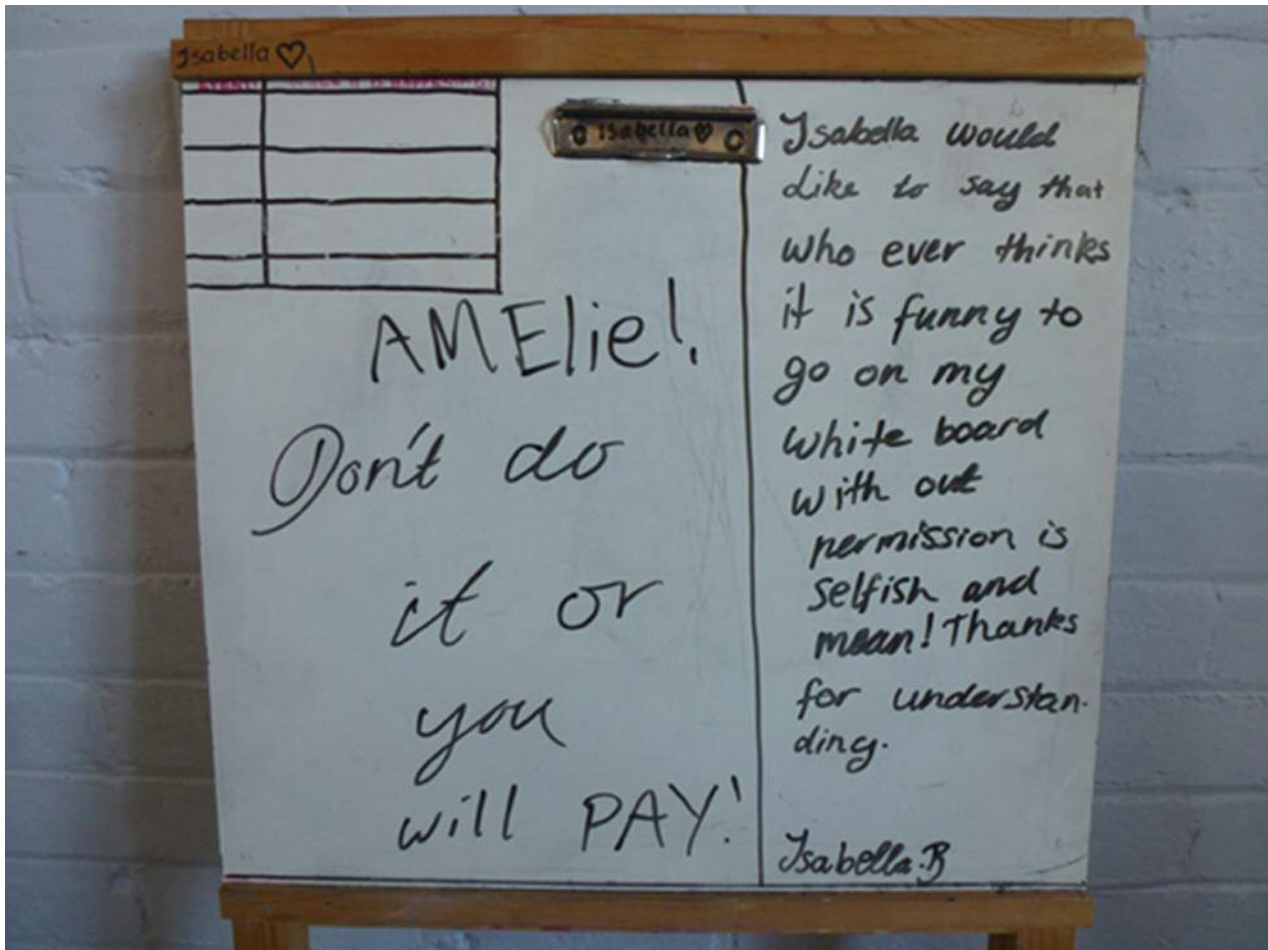 Isabella
EVENT:
WHEN IT IS HAPPENING:
Isabella
AMElie!
Don't do
it or
you
will PAY!
Isabella would
like to say that
who ever thinks
it is funny to
go on my
white board
with out
permission is
selfish and
mean! Thanks
for understan-
ding.
Isabella.B